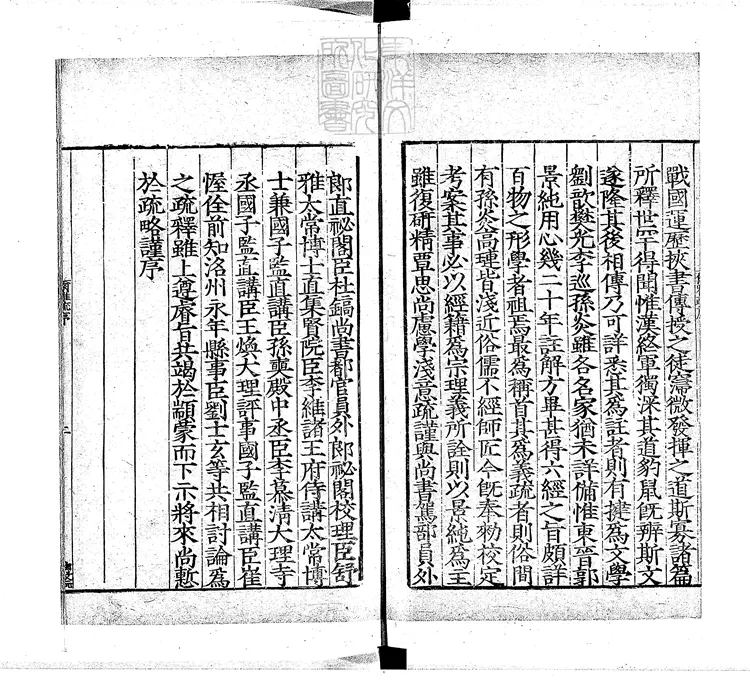 戰國運歷挾書傳授之徒寖微發揮之道斯寡諸篇
所釋世罕得聞惟漢終軍獨深其道豹鼠既辨斯文
遂隆其後相傳乃可詳悉其爲註者則有犍爲文學
劉歆樊光李巡孫炎雖各名家猶未詳備惟東晉郭
景純用心幾二十年註解方畢甚得六經之旨頗詳
百物之形學者祖焉最爲稱首其爲義疏者則俗間
有孫炎高璉皆淺近俗儒不經師匠今既奉勑校定
考案其事必以經籍爲宗理義所詮則以景純爲主
雖復研精覃思尚慮學淺意疏謹與尚書駕部員外
郎直祕閣臣杜鎬尚書都官員外郎祕閣校理臣舒
雅太常博士直集賢院臣李維諸王府侍講太常博
士兼國子監直講臣孫奭殿中丞臣李慕清大理寺
丞國子監直講臣王煥大理評事國子監直講臣崔
偓佺前知洺州永年縣事臣劉士玄等共相討論爲
之疏釋雖上遵睿旨共竭於顓蒙而下示將來尚慙
於疏略謹序